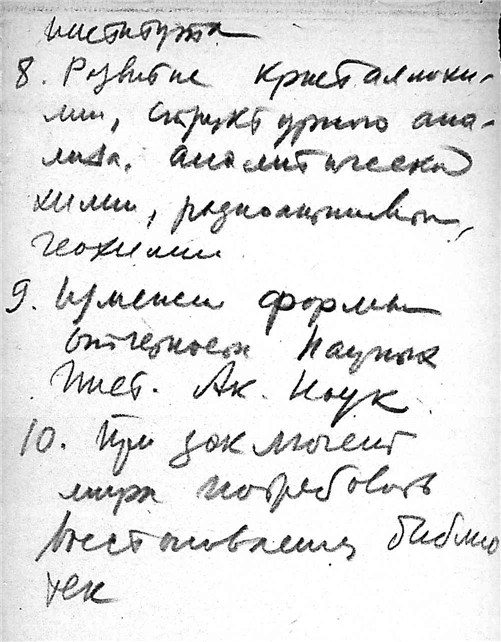 института
8. Развитие кристаллохи-
мии, структурного ана-
лиза, аналитической
химии, радиоактивности,
геохимии
9. Изменени формы
отчетности Научных
Инст. Ак. Наук
10. При заключении
мира потребовать
восстановления библио
тек